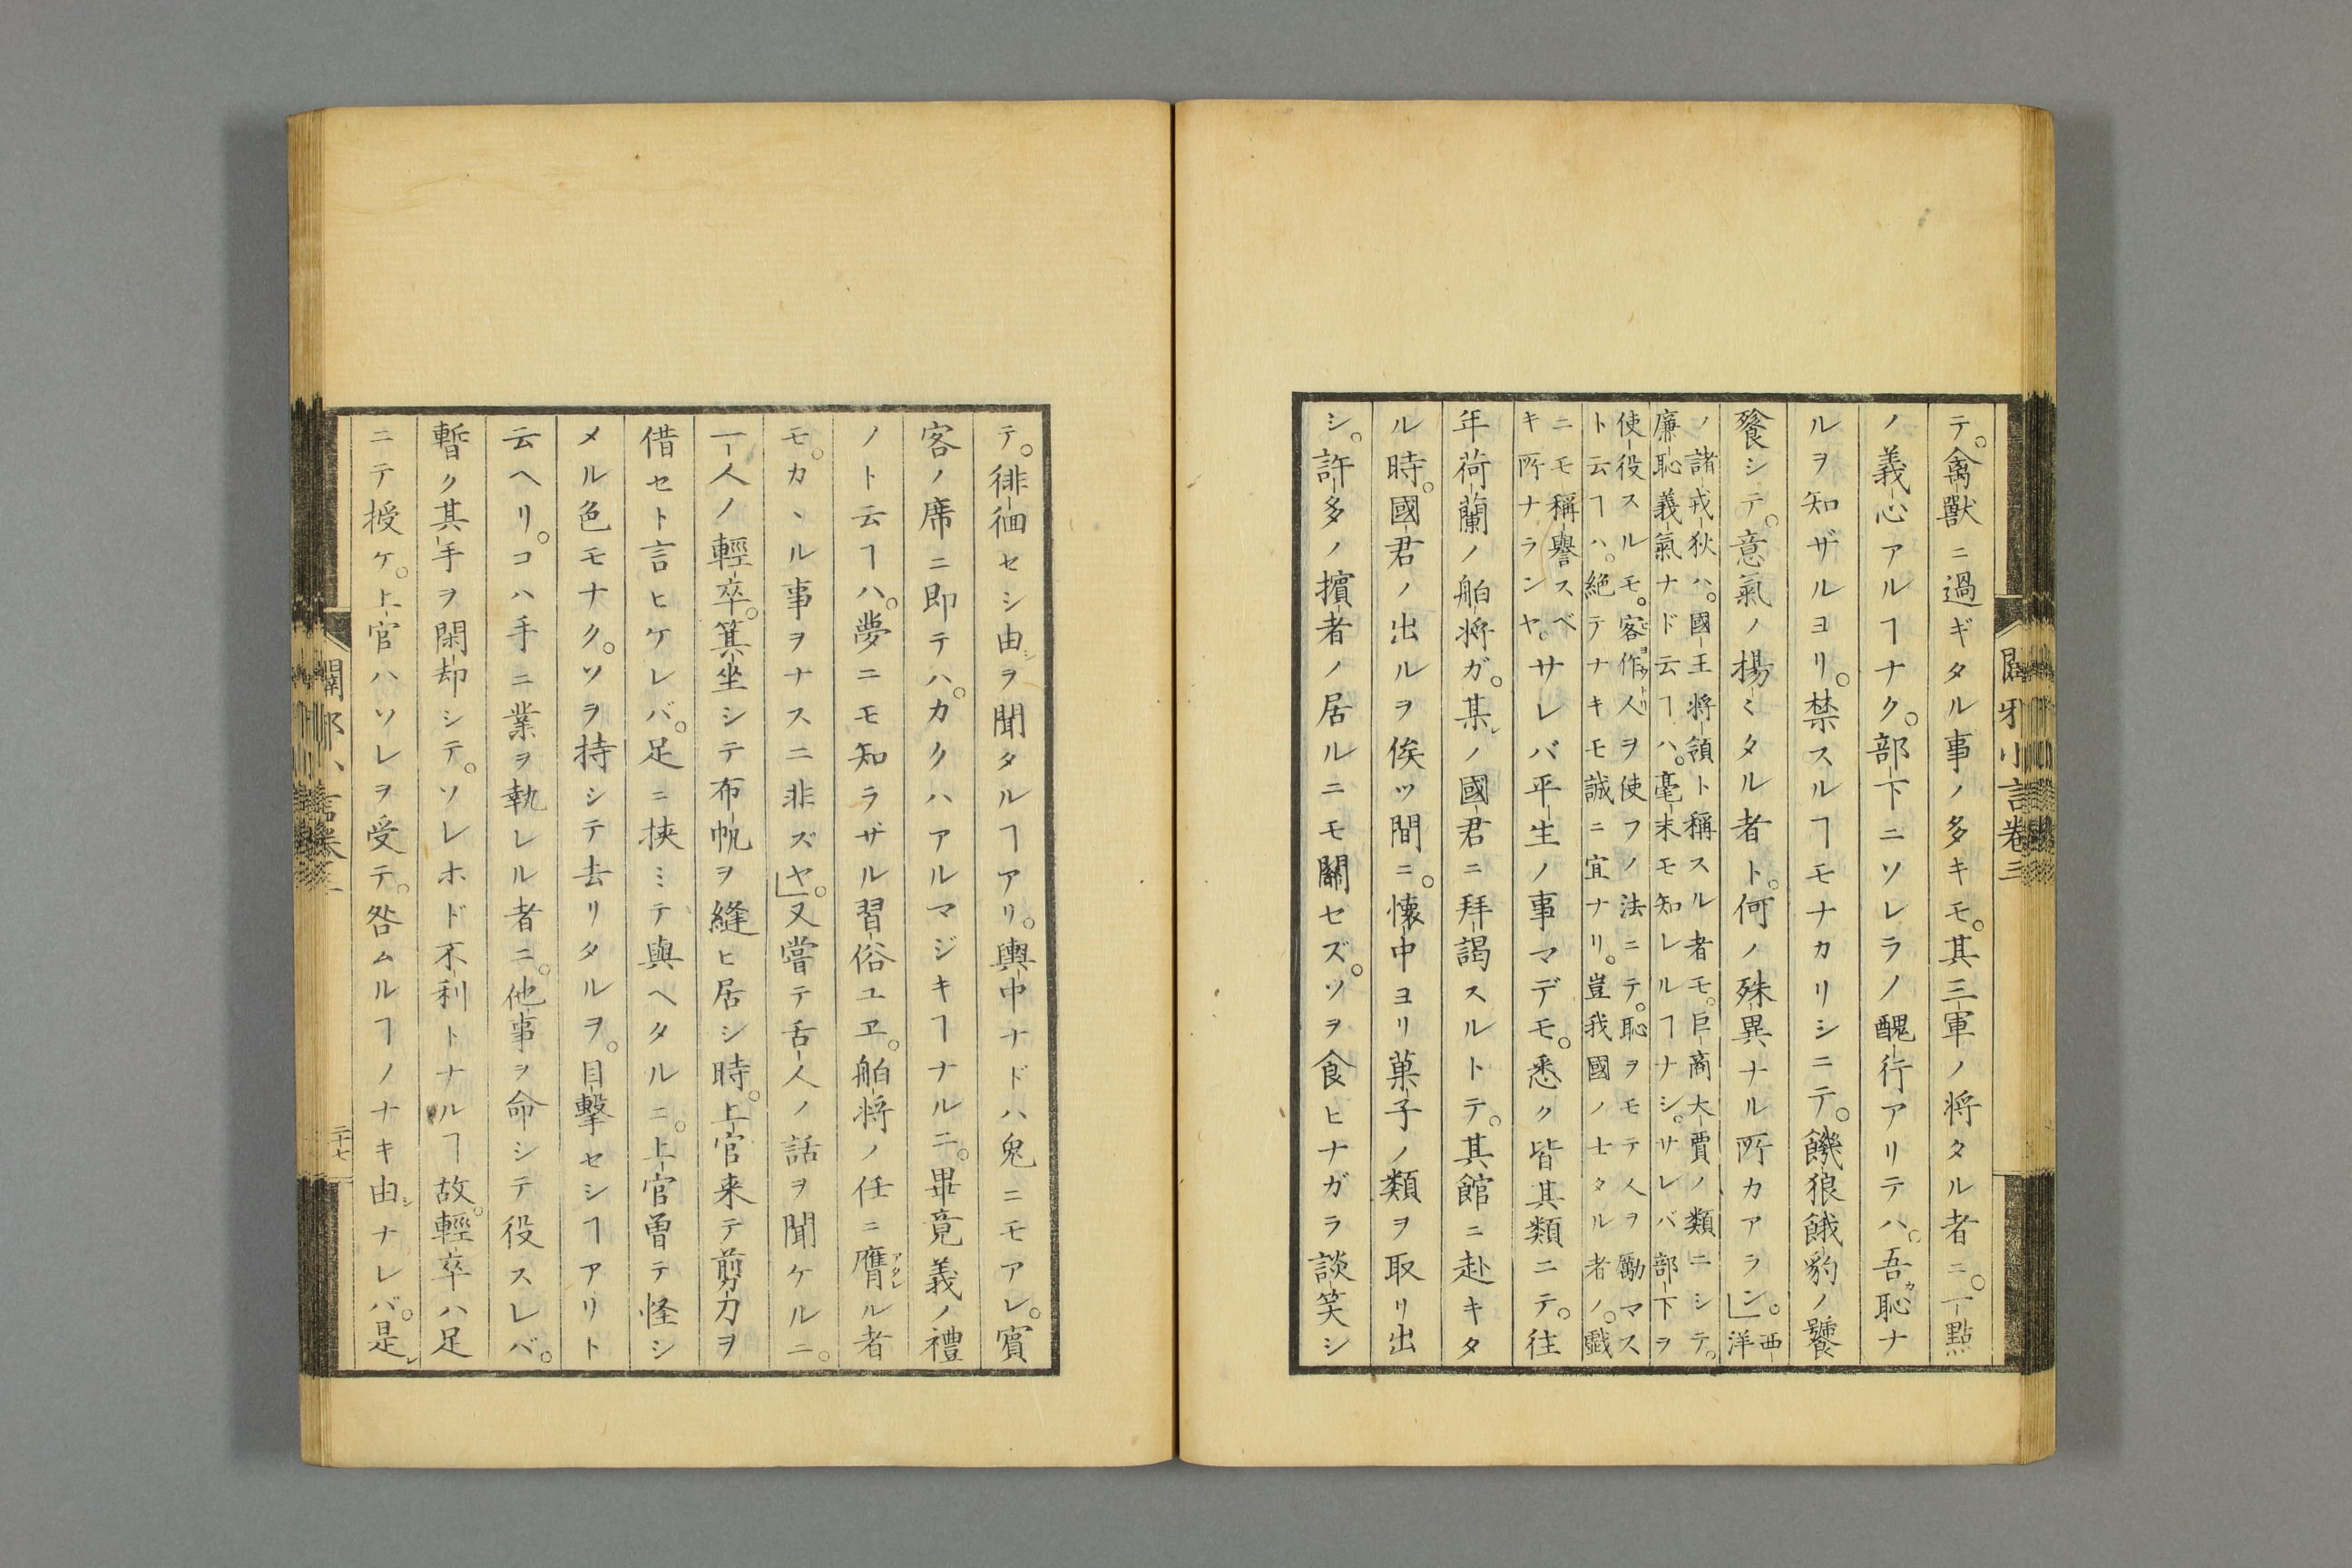 闢邪小言卷三
テ。禽獸ニ過ギタル事ノ多キモ。其三軍ノ将タル者ニ。一點
ノ義心アルヿナク。部下ニソレラノ醜行アリテハ。吾カ恥ナ
ルヲ知ザルヨリ。禁スルヿモナカリシニテ。饑狼餓豹ノ饕
餮シテ。意氣ノ揚ミタル者ト。何ノ殊異ナル所カアラン。」西洋
ノ諸戎狄ハ。國王将領ト稱スル者モ。巨商大賈ノ類ニシテ。
廉恥義氣ナド云ヿハ。毫末モ知レルヿナシ。サレバ部下ヲ
使役スルモ。客作人ヲ使フノ法ニテ。恥ヲモテ人ヲ勵マス
ト云ヿハ。絶テナキモ誠ニ宜ナリ。豈我國ノ士タル者ノ。戲
ニモ稱譽スベ
キ所ナランヤ。サレバ平生ノ事マデモ。悉ク皆其類ニテ。往
年荷蘭ノ舶将ガ。某ノ國君ニ拜謁スルトテ。其館ニ赴キタ
ル時。國君ノ出ルヲ俟ツ間ニ。懷中ヨリ菓子ノ類ヲ取リ出
シ。許多ノ擯者ノ居ルニモ關セズ。ソヲ食ヒナガラ談笑シ
テ。徘徊セシ由ヲ聞タルヿアリ。輿中ナドハ兎ニモアレ。賓
客ノ席ニ即テハ。カクハアルマジキヿナルニ。畢竟義ノ禮
ノト云ヿハ。夢ニモ知ラザル習俗ユヱ。舶将ノ任ニ膺ル者
モ。カヽル事ヲナスニ非ズヤ。」又嘗テ舌人ノ話ヲ聞ケルニ。
一人ノ輕卒。箕坐シテ布帆ヲ縫ヒ居シ時。上官来テ剪刀ヲ
借セト言ヒケレバ。足ニ挟ミテ與ヘタルニ。上官曽テ怪シ
メル色モナク。ソヲ持シテ去リタルヲ。目撃セシヿアリト
云ヘリ。コハ手ニ業ヲ執レル者ニ。他事ヲ命シテ役スレバ。
暫ク其手ヲ閑却シテ。ソレホド不利トナルヿ故。輕卒ハ足
ニテ授ケ。上官ハソレヲ受テ。咎ムルヿノナキ由ナレバ。是
闢邪小言卷三
二十七